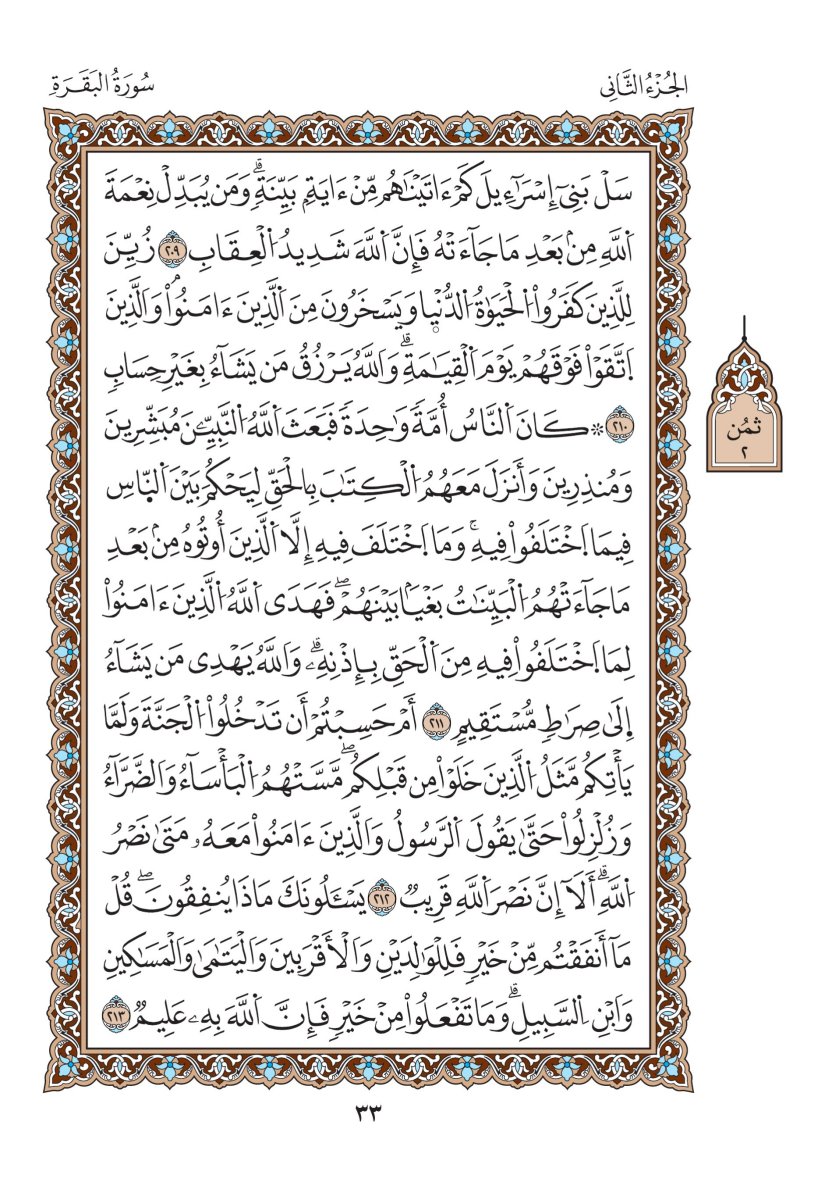 الجُزْءُ الثَّانِى
سُورَةُ البَقَرَةِ
سَلْ بَنِىٓ إِسْرَآءِيلَ كَمْ ءَاتَيْنَٰهُم مِّنْ ءَايَةِۭ بَيِّنَةٖۗ وَمَن يُبَدِّلْ نِعْمَةَ
اَ۬للَّهِ مِنۢ بَعْدِ مَا جَآءَتْهُ فَإِنَّ اَ۬للَّهَ شَدِيدُ اُ۬لْعِقَابِ ٢٠٩ زُيِّنَ
لِلذِينَ كَفَرُواْ اُ۬لْحَيَوٰةُ اُ۬لدُّنْي۪ا وَيَسْخَرُونَ مِنَ اَ۬لذِينَ ءَامَنُواْۘ وَالذِينَ
اَ۪تَّقَوْاْ فَوْقَهُمْ يَوْمَ اَ۬لْقِيَٰمَةِۗ وَاللَّهُ يَرْزُقُ مَن يَشَآءُ بِغَيْرِ حِسَابٖ
٢١٠ ۞ كَانَ اَ۬لنَّاسُ أُمَّةٗ وَٰحِدَةٗ فَبَعَثَ اَ۬للَّهُ اُ۬لنَّبِيِّـۧنَ مُبَشِّرِينَ
وَمُنذِرِينَ وَأَنزَلَ مَعَهُمُ اُ۬لْكِتَٰبَ بِالْحَقِّ لِيَحْكُم بَيْنَ اَ۬لنّ۪اسِ
فِيمَا اَ۪خْتَلَفُواْ فِيهِۚ وَمَا اَ۪خْتَلَفَ فِيهِ إِلَّا اَ۬لذِينَ أُوتُوهُ مِنۢ بَعْدِ
مَا جَآءَتْهُمُ اُ۬لْبَيِّنَٰتُ بَغْيَۢا بَيْنَهُمْۖ فَهَدَى اَ۬للَّهُ اُ۬لذِينَ ءَامَنُواْ
لِمَا اَ۪خْتَلَفُواْ فِيهِ مِنَ اَ۬لْحَقِّ بِإِذْنِهِۦۗ وَاللَّهُ يَهْدِى مَن يَشَآءُ
اِ۪لَىٰ صِرَٰطٖ مُّسْتَقِيمٍ ٢١١ أَمْ حَسِبْتُمْ أَن تَدْخُلُواْ اُ۬لْجَنَّةَ وَلَمَّا
يَأْتِكُم مَّثَلُ اُ۬لذِينَ خَلَوْاْ مِن قَبْلِكُمۖ مَّسَّتْهُمُ اُ۬لْبَأْسَآءُ وَالضَّرَّآءُ
وَزُلْزِلُواْ حَتَّىٰ يَقُولَ اَ۬لرَّسُولُ وَالذِينَ ءَامَنُواْ مَعَهُۥ مَتَىٰ نَصْرُ
اُ۬للَّهِۗ أَلَآ إِنَّ نَصْرَ اَ۬للَّهِ قَرِيبٞ ٢١٢ يَسْـَٔلُونَكَ مَاذَا يُنفِقُونَۖ قُلْ
مَآ أَنفَقْتُم مِّنْ خَيْرٖ فَلِلْوَٰلِدَيْنِ وَالْأَقْرَبِينَ وَالْيَتَٰمَىٰ وَالْمَسَٰكِينِ
وَابْنِ اِ۬لسَّبِيلِۗ وَمَا تَفْعَلُواْ مِنْ خَيْرٖ فَإِنَّ اَ۬للَّهَ بِهِۦ عَلِيمٞ ٢١٣
ثمُن
٢
٣٣